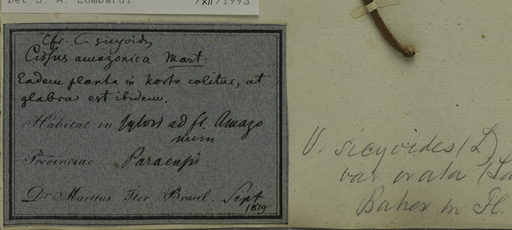 Det J. A. Lombardi /XII/1993
Cfr. C. sicyoides
Cissus amazonica Mart.
Eadem planta in horto colitur, at
glabra est ibidem.
Habitat in sylvis ad fl. Amazo
num
Provinciae Paraensis
Dr. Martius Iter Brasil. Sept
1819
V. sicyoides (L)
var ovata (La
Baker in Fl.